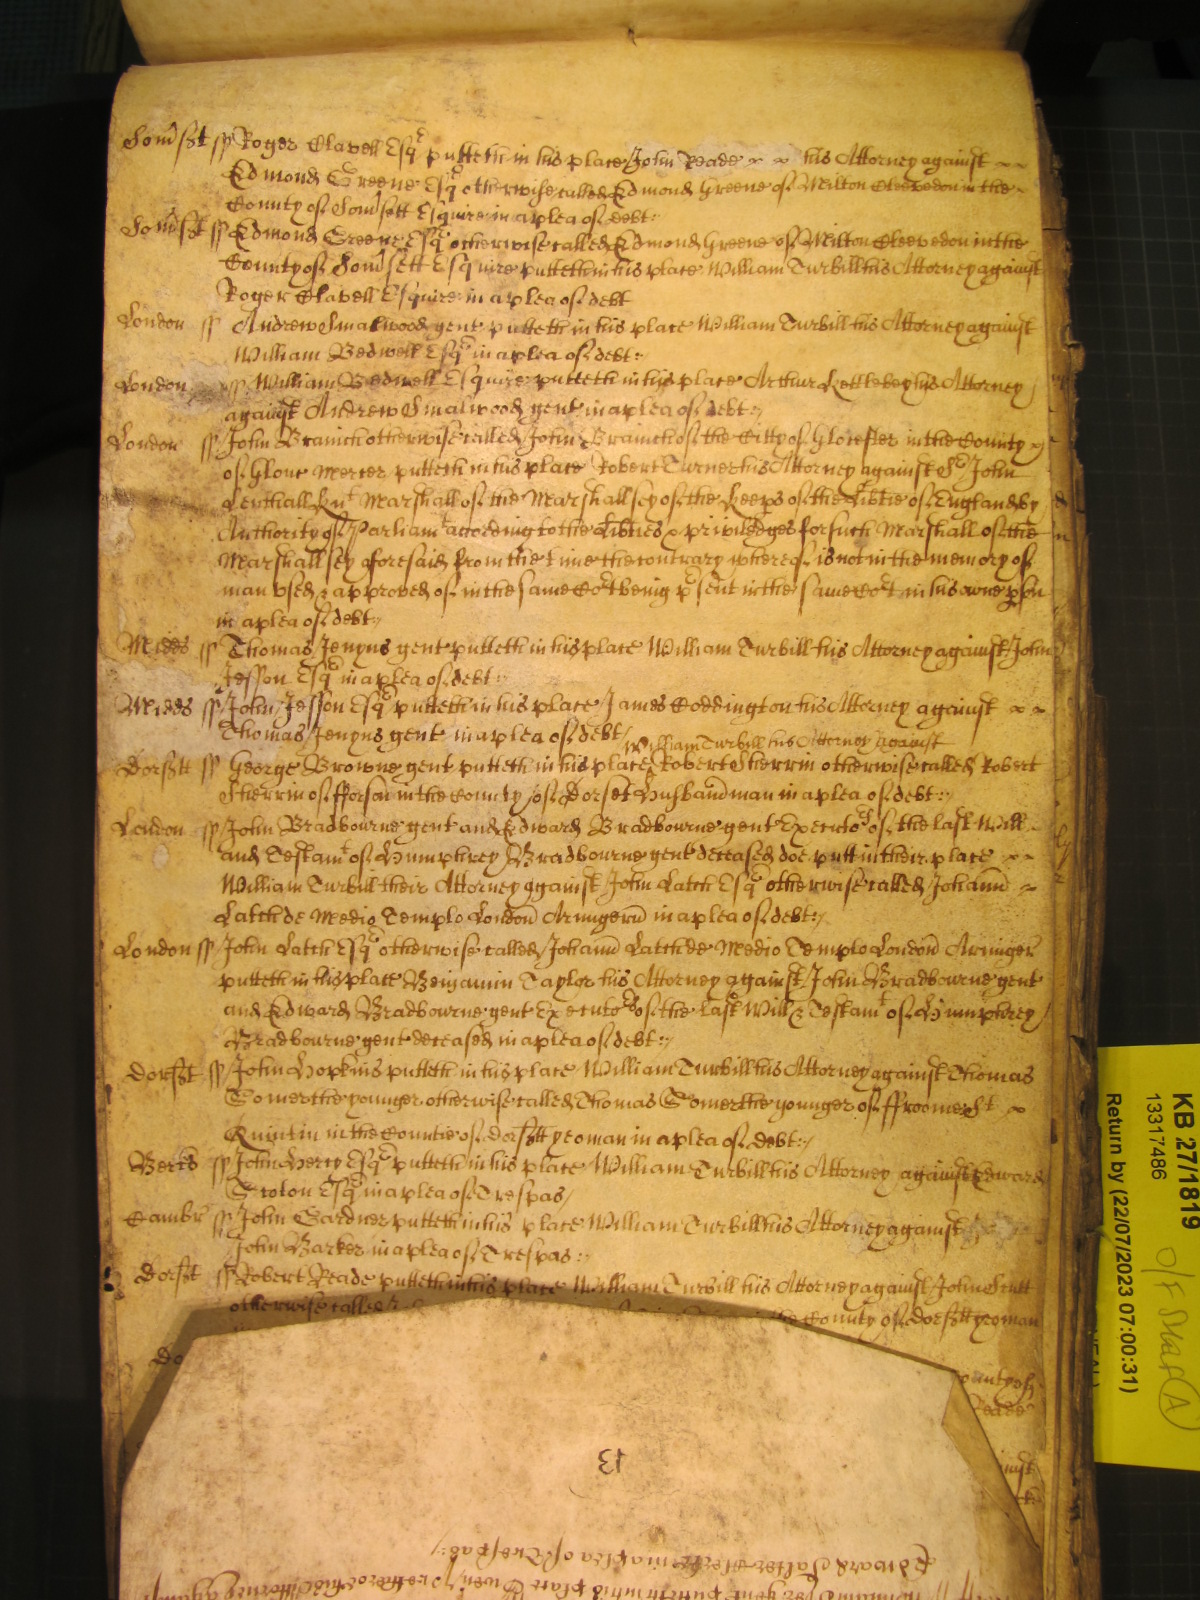 Som̃sẽt ss Roger Clavell Esqr putteth in his place John Reade his Attorney against
Edmond Greene Esqr otherwise called Edmond Greene of Milton Cleevedon in the
County of Som̃sett Esquire in a plea of debt
Som̃sẽt ss Edmond Greene Esqr otherwise called Edmond Greene of Milton Cleevedon in the
County of Som̃sett Esquire putteth in his place William Turbill his Attorney against
Roger Clavell Esquire in a plea of debt
London ss Andrew Smalwood gent putteth in his place William Turbill his Attorney against
William Bedwell Esqr in a plea of debt
London ss William Bedwell Esquire putteth in his place Arthur Kettlebey his Attorney
against Andrew Smalwood gent in a plea of debt
London ss John Brainch otherwise called John Brainch of the Citty of Glocester in the County
of Glouc Mercer putteth in his place Robert Turner his Attorney against Sr John
Lenthall Knt Marshall of the Marshallsey of the Keeps of the Libtie of England by
Authority of Parliamt according to the Libties & priviledges for such Marshall of the
Marshallsey aforesaid from the time the contrary whereof is not in the memory of
man used & approved of in the same Cort being psent in the same Cort in his owne pson
in a plea of debt
Midds ss Thomas Jenyns gent putteth in his place William Turbill his Attorney against John
Jesson Esqr in a plea of debt
Midds ss John Jesson Esqr putteth in his place James Coddington his Attorney against
Thomas Jenyns gent in a plea of debt
William Turbill his Attorney against
Dorsẽtt ss George Browne gent putteth in his place Robert Sherrin otherwise called Robert
Sherrin of fforson in the County of Dorset Husbandman in a plea of debt
London ss John Bradbourne gent and Edward Bradbourne gent Executors of the last Will
and Testamt of Humphrey Bradbourne gent deceased doe putt in their place
William Turbill their Attorney against John Latch Esqr otherwise called Johann̄
Latch de Medio Templo London̄ Armigerū in a plea of debt
London ss John Latch Esqr otherwise called Johann̄ Latch de Medio Templo London̄ Armiger̄
putteth in his place Benjamin Taylor his Attorney against John Bradbourne gent
and Edward Bradbourne gent Executors of the last Will & Testamt of Humphrey
Bradbourne gent deceased in a plea of debt
Dorsẽt ss John Hopkins putteth in his place William Turbill his Attorney against Thomas
Somer the younger otherwise called Thomas Somer the younger of ffroome St
Quintin in the Countie of dorsẽtt yeoman in a plea of debt
Berks ss John Esqr putteth in his place William Turbill his Attorney against Edward
Esqr in a plea of Trespas
Cambr ss John Gardner putteth in his place William Turbill his Attorney against
John Barker in a plea of Trespas
Dorsẽt ss Robert Reade putteth in his place William Turbill his Attorney against John
otherwise called the County of dorsẽtt yeoman
Do
County of
Reade
against
13
Edward Salter in a plea of Trespas
gent putteth in his place his Attorney against
KB 27/1819
13317486
Return by (22/07/2023 07:00:31)
O/F
A